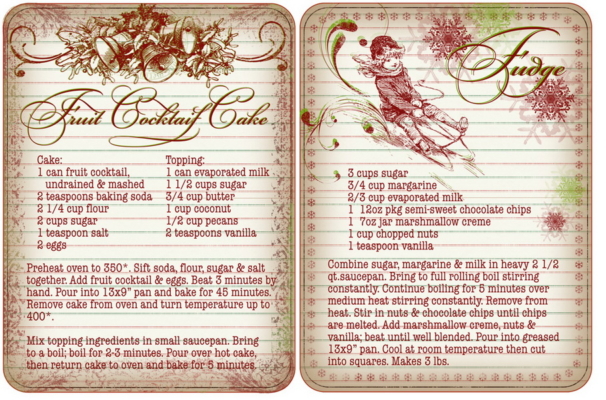 Fruit Cocktail Cake
Cake:
1 can fruit cocktail,
undrained & mashed
2 teaspoons baking soda
2 1/4 cup flour
2 cups sugar
1 teaspoon salt
2 eggs
Topping:
1 can evaporated milk
1 1/2 cups sugar
3/4 cup butter
1 cup coconut
1/2 cup pecans
2 teaspoons vanilla
Preheat oven to 350*. Sift soda, flour, sugar & salt
together. Add fruit cocktail & eggs. Beat 3 minutes by
hand. Pour into 13x9" pan and bake for 45 minutes.
Remove cake from oven and turn temperature up to
400*.
Mix topping ingredients in small saucepan. Bring
to a boil; boil for 2-3 minutes. Pour over hot cake,
then return cake to oven and bake for 5 minutes.
Fudge
3 cups sugar
3/4 cup margarine
2/3 cup evaporated milk
1 12oz pkg semi-sweet chocolate chips
1 7oz jar marshmallow creme
1 cup chopped nuts
1 teaspoon vanilla
Combine sugar, margarine & milk in heavy 2 1/2
qt.saucepan. Bring to full rolling boil stirring
constantly. Continue boiling for 5 minutes over
medium heat stirring constantly. Remove from
heat. Stir in nuts & chocolate chips until chips
are melted. Add marshmallow creme, nuts &
vanilla; beat until well blended. Pour into greased
13x9" pan. Cool at room temperature then cut
into squares. Makes 3 lbs.